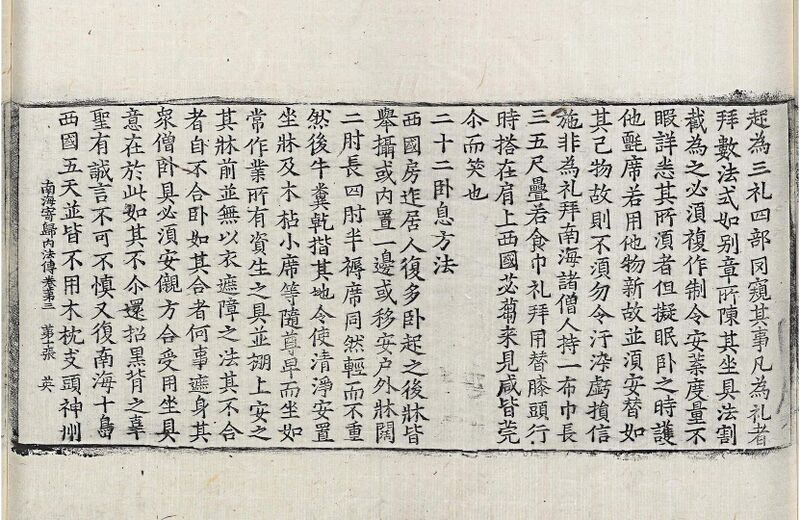 起為三礼四部同窺其事凡為礼者
拜數法式如別章所陳其坐具法割
截為之必須複作制令安葉度量不
暇詳悉其所須者但擬眠卧之時護
他氈席若用他物新故並須安替如
其己物故則不須勿令汙染虧損信
施非為礼拜南海諸僧人持一布巾長
三五尺疊若食巾礼拜用替膝頭行
時搭在肩上西國苾蒭來見咸皆莞
尒而笑也
二十二卧息方法
西國房迮居人復多卧起之後牀皆
舉攝或內置一邊或移安戶外牀闊
二肘長四肘半褥席同然輕而不重
然後牛糞乾揩其地令使清淨安置
坐牀及木枮小席等隨尊卑而坐如
常作業所有資生之具並棚上安之
其牀前並無以衣遮障之法其不合
者自不合卧如其合者何事遮身其
衆僧卧具必須安儭方合受用坐具
意在於此如其不尒還招黑背之辜
聖有誠言不可不慎又復南海十島
西國五天並皆不用木枕支頭神州
南海寄歸內法傳卷第三 第張 英